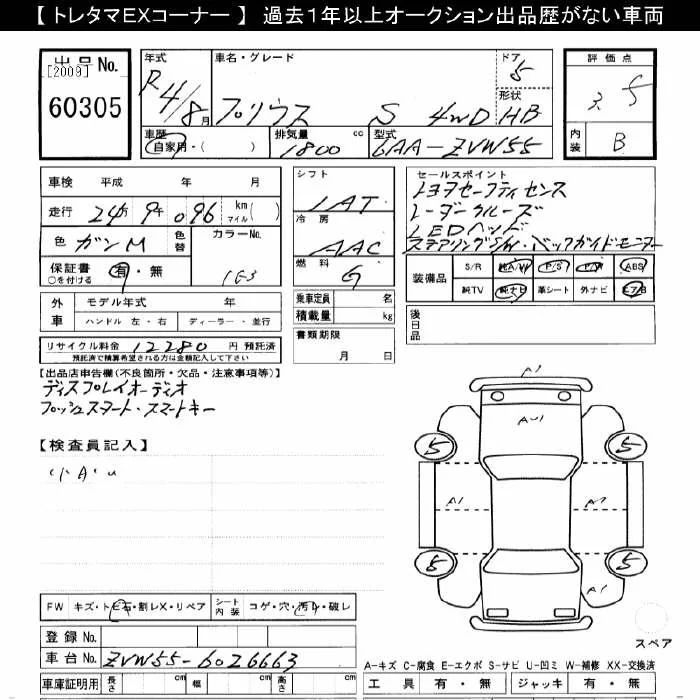 【 トレタマEXコーナー 】 過去1年以上オークション出品歴がない車両
出品No.
[2009]
60305
年式
R4/8月
車名・グレード
プリウス S 4WD
ドア
5
形状
HB
評価点
3.5
内装
B
車歴
自家用・( )
排気量 cc
1800
型式
6AA-ZVW55
車検 平成 年 月
走行 24万9千096 km マイル( )
色 ガンM
色替
カラーNo.
1G3
保証書 有・無
○を付ける
外車
モデル年式 年
ハンドル 左・右
ディーラー・並行
リサイクル料金 12280 円 預託済
預託済で積算希望される方は金額記入して下さい
シフト
IAT
冷房
AAC
燃料
G
乗車定員 名
積載量 kg
書類期限
月 日
セールスポイント
トヨタセーフティセンス
レーダークルーズ
LEDヘッド
ステアリングS/W・バックガイドモニター
装備品
S/R 純A/W P/S P/W ABS
純TV 純ナビ 革シート 外ナビ エアB
後日品
【出品店申告欄(不良箇所・欠品・注意事項等)】
ディスプレイオーディオ
プッシュスタート・スマートキー
【検査員記入】
小A・U
A1
AU1
5 5
A1
5 5
FW キズ・トビ石・割レX・リペア
シート内装 コゲ・穴・汚レ・破レ
登録No.
車台No. ZVW55-6026663
車庫証明用 長さ cm 幅 cm 高さ cm
スペア
A-キズ C-腐食 E-エクボ S-サビ U-凹ミ W-補修 XX-交換済
工具 有・無 ジャッキ 有・無